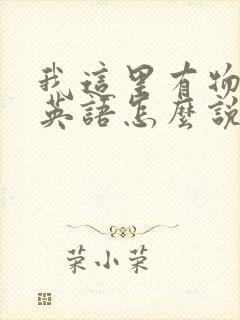 我這里有物
英語怎麼說
荣小荣